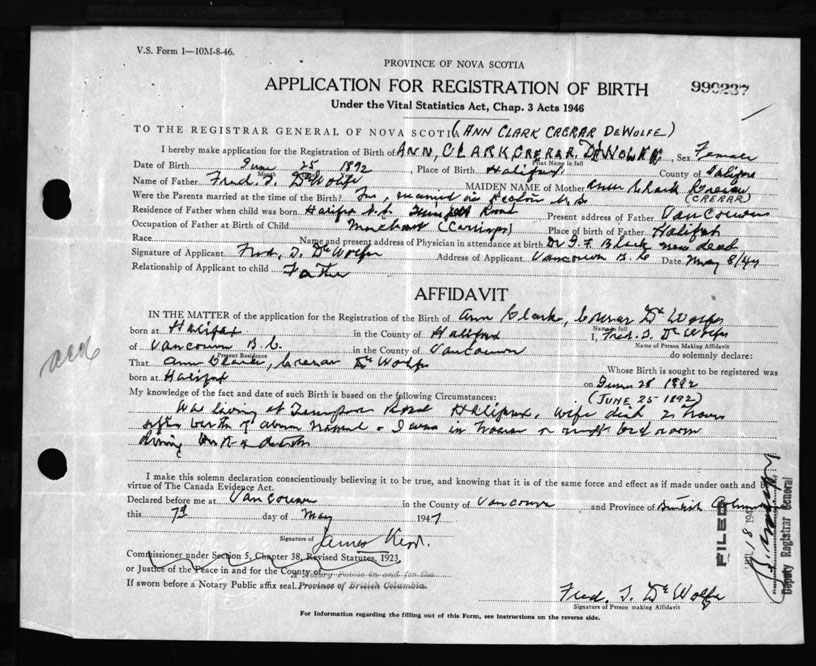 V.S. Form 1—10M-8-46.
PROVINCE OF NOVA SCOTIA
APPLICATION FOR REGISTRATION OF BIRTH
990237
Under the Vital Statistics Act, Chap. 3 Acts 1946
TO THE REGISTRAR GENERAL OF NOVA SCOTIA (ANN CLARK CRERAR DEWOLFE)
I hereby make application for the Registration of Birth of ANN, CLARK CRERAR, DEWOLFE, Sex Female
Print Name in full
Date of Birth June 25 1892, Place of Birth Halifax County of Halifax
Month
Name of Father Fred. I. De Wolfe MAIDEN NAME of Mother Ann Clark Crerar
(CRERAR)
Were the Parents married at the time of the Birth?
Residence of Father when child was born Halifax N.S. Road Present address of Father Vancouver
Occupation of Father at Birth of Child Merchant Place of birth of Father Halifax
Race Name and present address of Physician in attendance at birth Dr G. F. Black now dead
Signature of Applicant Fred. I. De Wolfe Address of Applicant Vancouver B.C Date May 8/47
Relationship of Applicant to child Father
AFFIDAVIT
IN THE MATTER of the application for the Registration of the Birth of Ann Clark, Crerar De Wolfe
Name in full
born at Halifax in the County of Halifax I, Fred. I. De Wolfe
Name of Person Making Affidavit
of Vancouver B.C. in the County of Vancouver do solemnly declare:
Present Residence
That Ann Clark, Crerar De Wolfe Whose Birth is sought to be registered was
born at Halifax on June 28 1892
My knowledge of the fact and date of such Birth is based on the following Circumstances: (JUNE 25-1892)
Was living at Road Halifax. Wife died 2 hours
after birth of above named - I was in house or bed room
during birth & death
I make this solemn declaration conscientiously believing it to be true, and knowing that it is of the same force and effect as if made under oath and by
virtue of The Canada Evidence Act.
Declared before me at Vancouver in the County of Vancouver and Province of British Columbia
this 7th day of May 1947
Signature of James
Commissioner under Section 5, Chapter 38, Revised Statutes, 1923,
or Justice of the Peace in and for the County of
A Notary Public in and for the
If sworn before a Notary Public affix seal. Province of British Columbia.
Fred. I. De Wolfe
Signature of Person making Affidavit
For Information regarding the filling out of this Form, see Instructions on the reverse side.
FILED
Deputy Registrar General